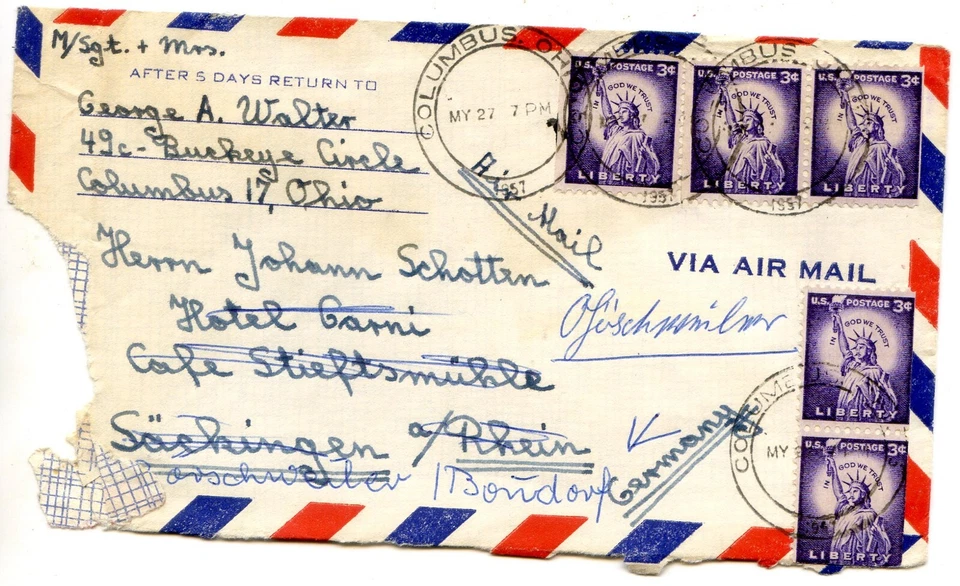 M/Sgt. + Mrs.
AFTER 5 DAYS RETURN TO
George A. Walter
49c - Buckeye Circle
Columbus 17, Ohio
COLUMBUS, OHIO
MY 27 7 PM
1957
COLUMBUS
1957
COLUMBUS
1957
U.S. POSTAGE 3¢
IN GOD WE TRUST
LIBERTY
U.S. POSTAGE 3¢
IN GOD WE TRUST
LIBERTY
U.S. POSTAGE 3¢
IN GOD WE TRUST
LIBERTY
Air Mail
VIA AIR MAIL
Herrn Johann Schotten
Hotel Garni
Cafe Stieftsmühle
Säckingen a/Rhein
/ Bonndorf
Germany
U.S. POSTAGE 3¢
IN GOD WE TRUST
LIBERTY
U.S. POSTAGE 3¢
IN GOD WE TRUST
LIBERTY
COLUMBUS
MY